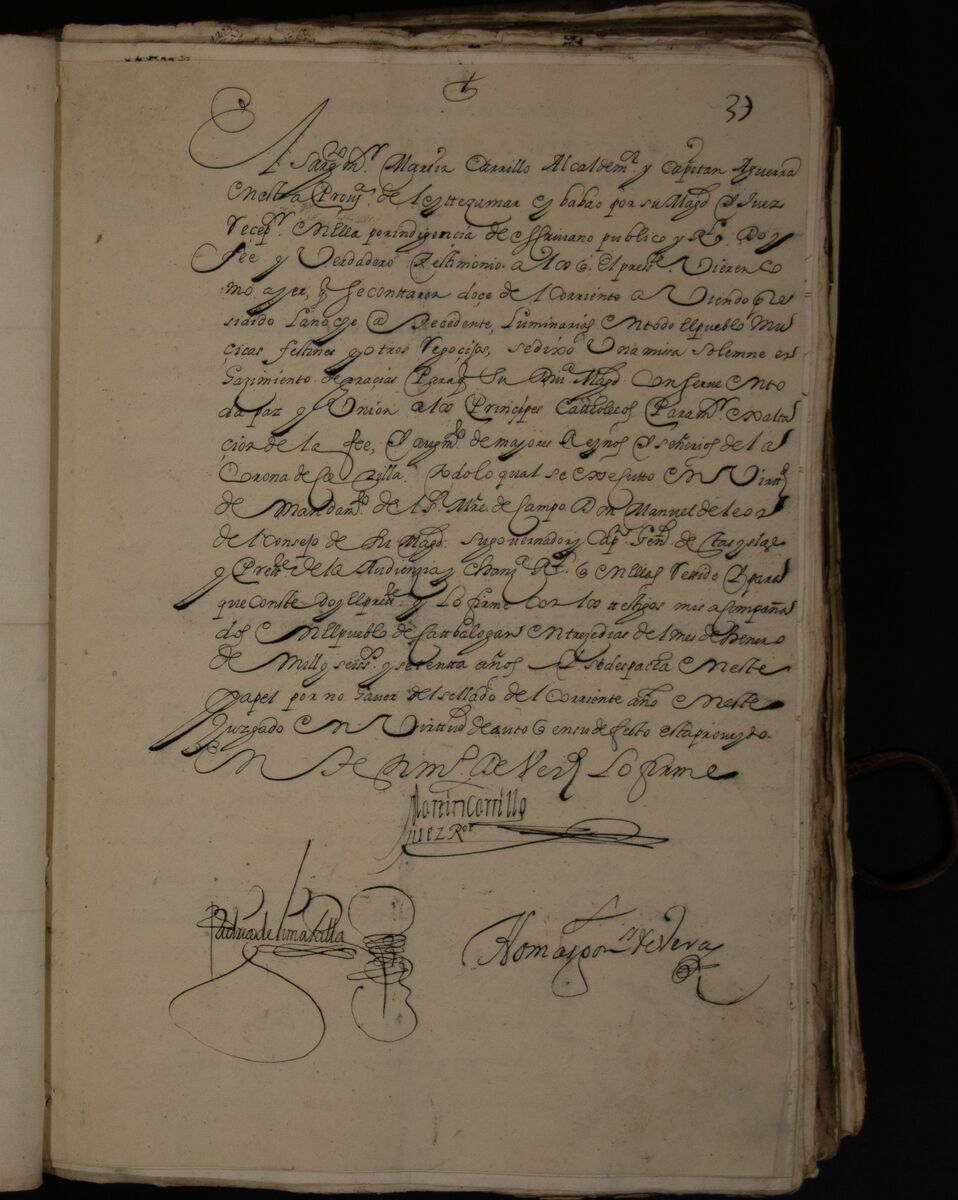 +
37
El Sargto Mr Martin Carrillo Alcaldemr y Capitan Aguerra
enesta Prova de leyttezamar e ybabao por su Magd y Juez
Recepr enella por indigencia de esscrivano publico y Rl Doy
fee y Verdadero Testimonio a los q el preste Vieren co
mo ayer, q secontaron doçe de l Corriente aviendo pre
sidido la noche antecedente, luminarias entodo elpueblo mu
çicas festines y otros regocijos, sedixo una misa solemne en
hazimiento de gracias Paraq Su Diva Magd conserve ento
da paz y Union a los Principes Cattholicos Paramr exalta
çion de la fee, y augmto de majores Reynos y señorios de la
Corona de Castilla. Todo lo qual se executto en Virttd
de Mandamto de l Sr Mre de Campo Don Manuel de leon
de l Consejo de su Magd su governador y Capn Genl de estas yslas
y Preste de la Audiençia y chanza Rl q enellas Reside y para
que conste doy el preste y lo firme con los testigos mis a compaña
dos en elpueblo de Cattbalogan en treze dias de l mes de henero
de mill y seisçs y setentta años y sedespacha eneste
papel por no haver del sellado de l Corriente año eneste
Juzgado en Virttud de auto q en su defecto esta proveydo.
En Testimo de Verd lo firme
Martin Carrillo
juez Ror
de Lima
Thomas de Vera